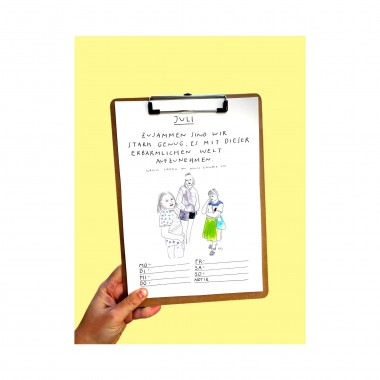 JULI
ZUSAMMEN SIND WIR
STARK GENUG, ES MIT DIESER
ERBÄRMLICHEN WELT
AUFZUNEHMEN.
MO-
DI-
MI-
DO-
FR-
SA-
SO-
NOTIZ